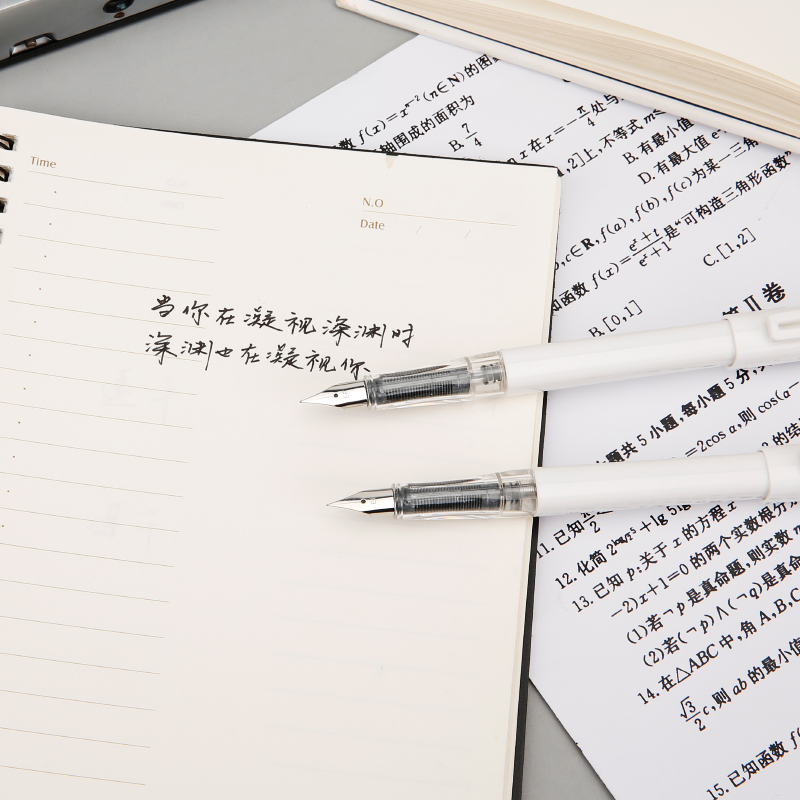 Time
N.O
Date / /
当你在凝视深渊时
深渊也在凝视你
数 f(x)=x^{n-2}(n∈N)的图
轴围成的面积为
B. 7/4
x 在 x=-π/4 处与
1,2]上,不等式 m
B. 有最小值
D. 有最大值 e
c∈R, f(a), f(b), f(c)为某一三角
是“可构造三角形函数”
知函数 f(x)=(e^x+t)/(e^x+1)
C.[1,2]
B.[0,1]
第Ⅱ卷
题共 5 小题,每小题 5 分,
=2cos α,则 cos(α-
11. 已知
12. 化简
+lg 5lg
的结
13. 已知 p:关于 x 的方程 x
-2)x+1=0 的两个实数根分
(1)若¬p 是真命题,则实数
(2)若(¬p)∧(¬q)是真命
14. 在△ABC 中,角 A,B,C
√3/2 c,则 ab 的最小值
15. 已知函数 f(